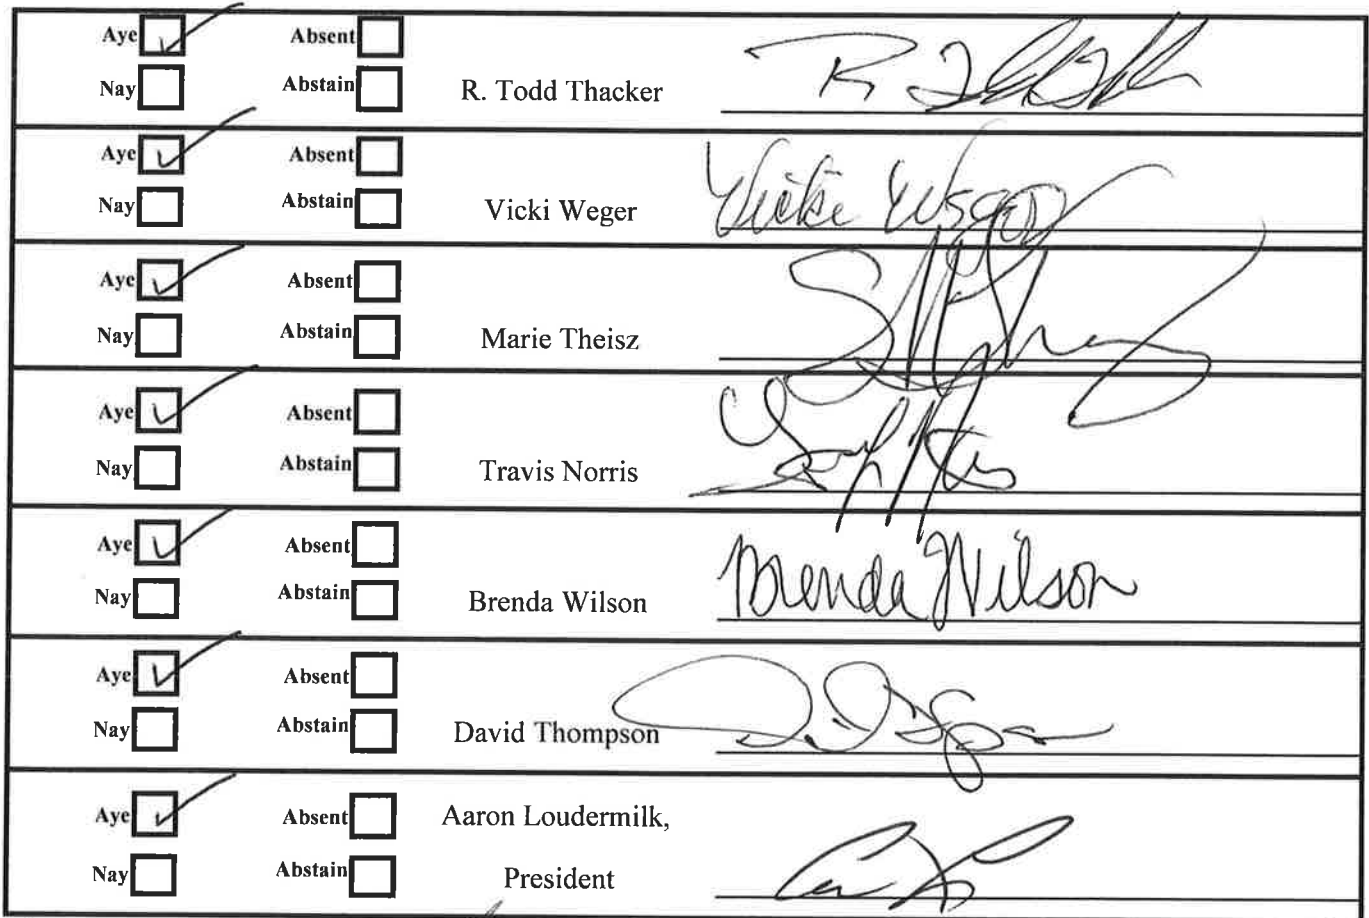 Aye Absent
Nay Abstain R. Todd Thacker
Aye Absent
Nay Abstain Vicki Weger
Vicki Weger
Aye Absent
Nay Abstain Marie Theisz
Aye Absent
Nay Abstain Travis Norris
Aye Absent
Nay Abstain Brenda Wilson
Brenda Wilson
Aye Absent
Nay Abstain David Thompson
Aye Absent Aaron Loudermilk,
Nay Abstain President